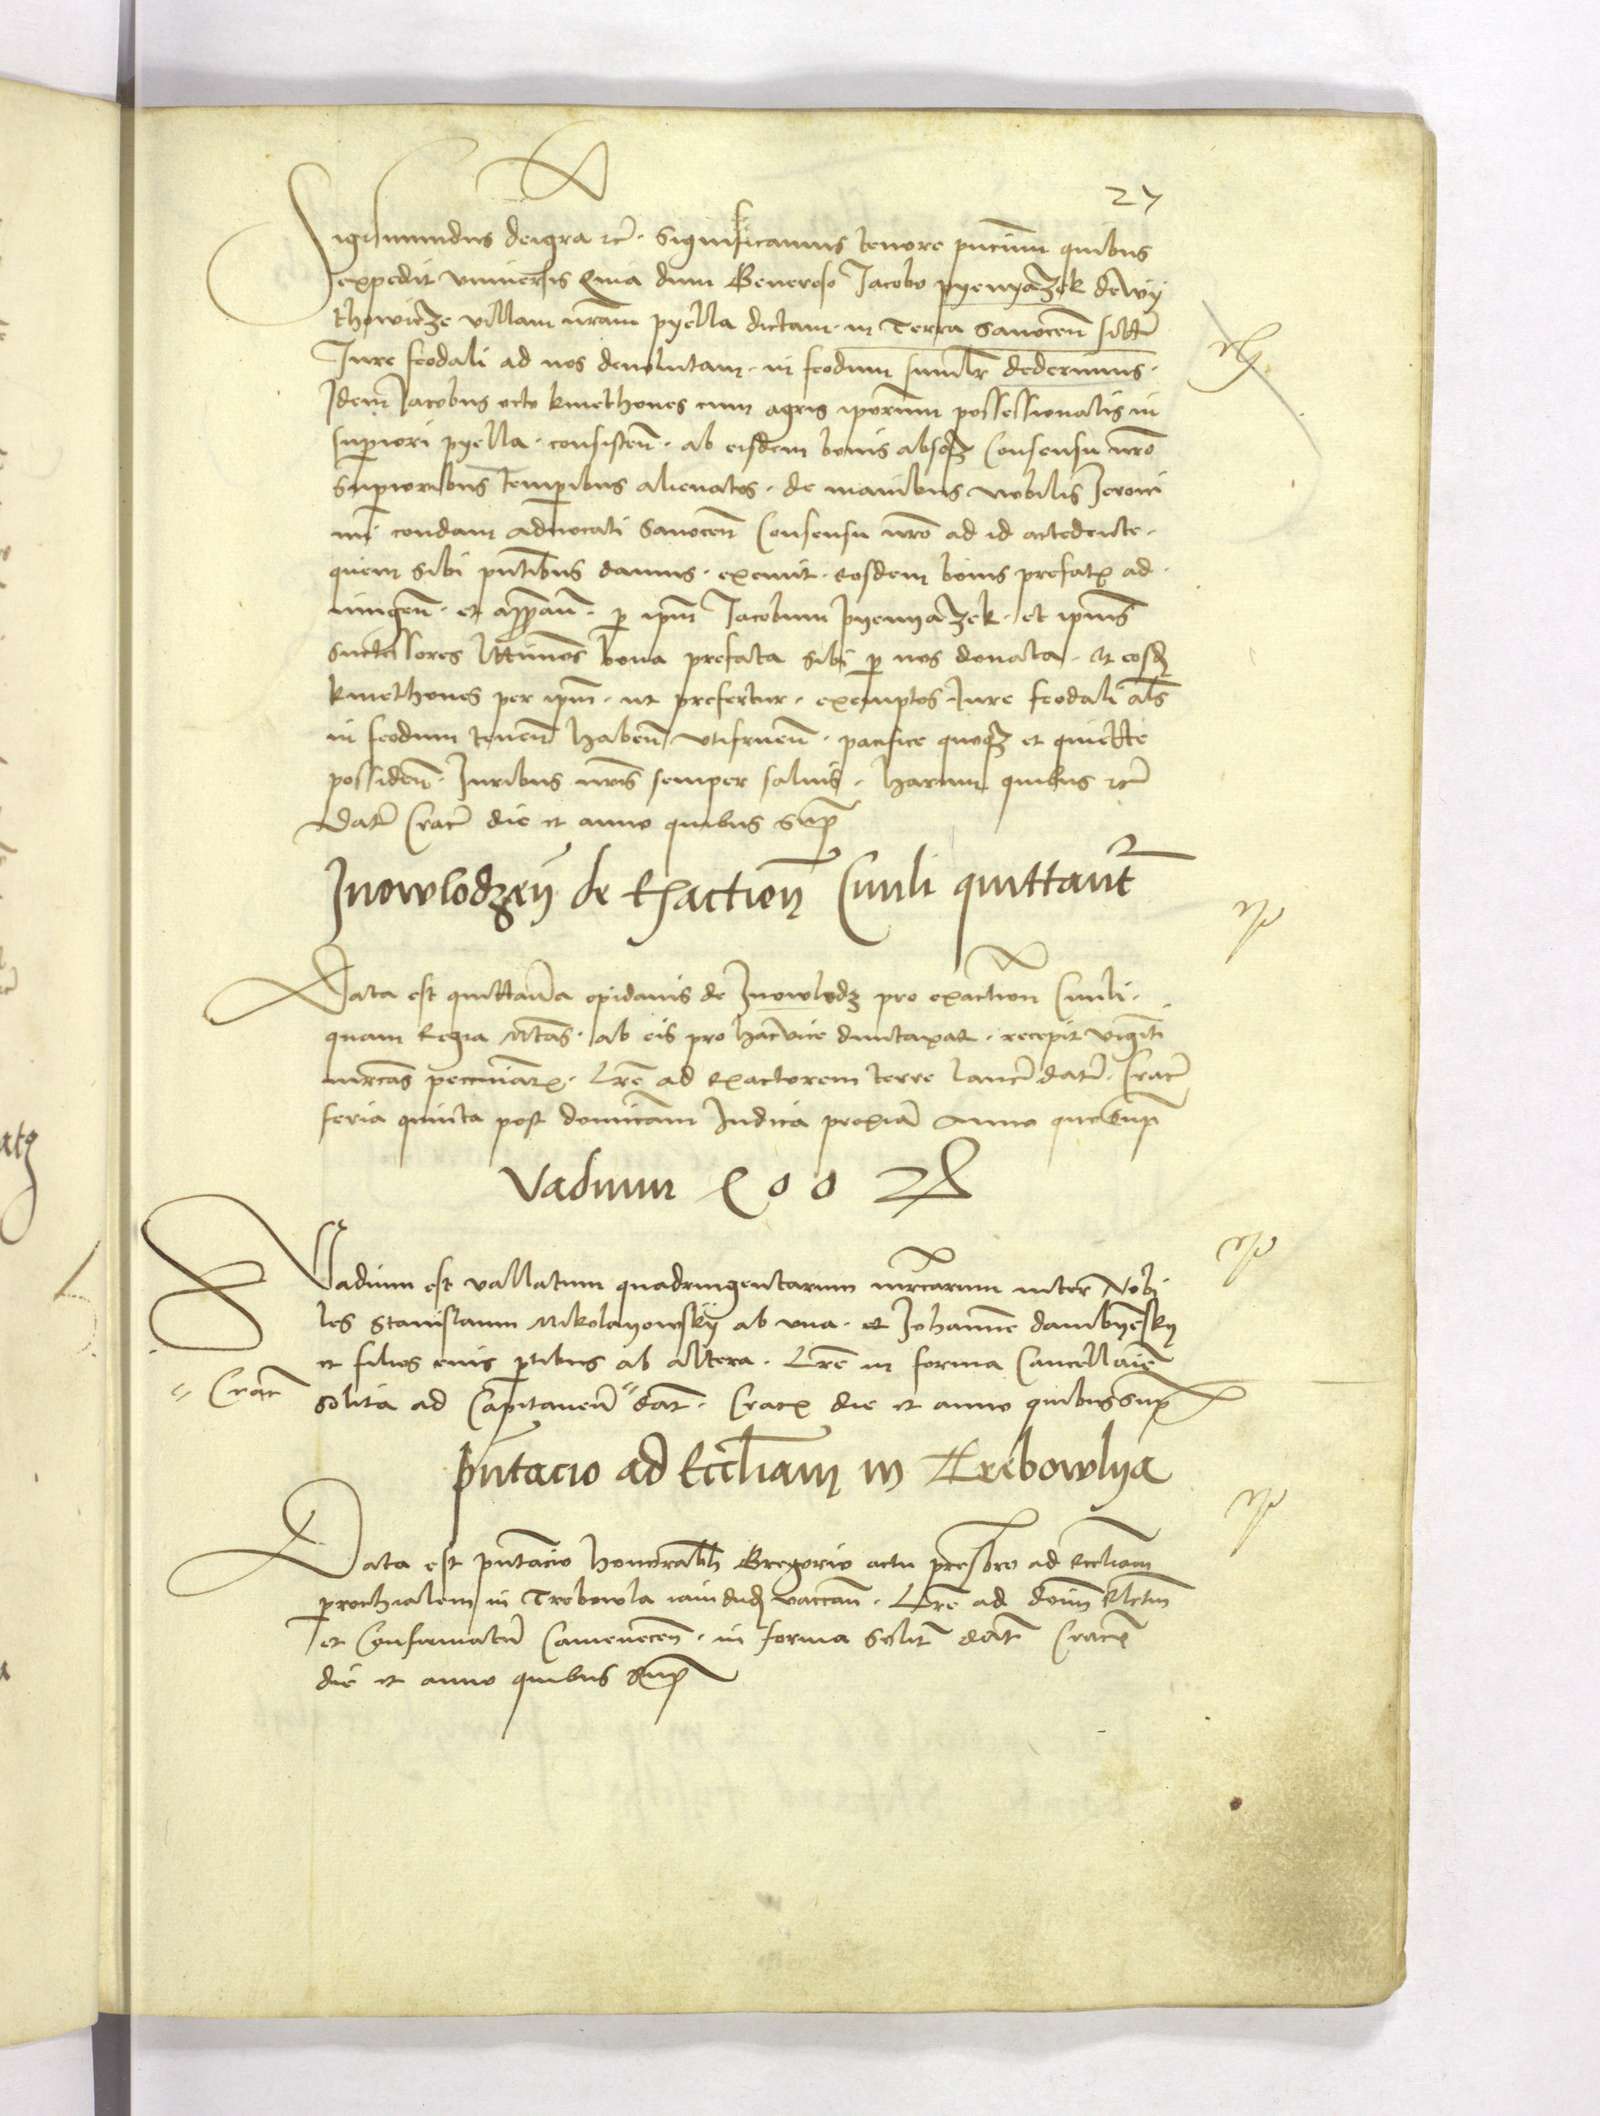 27
Sigismundus deigra etc. Significamus tenore pncium quibus
expedit universis Quia dum Generoso Jacobo pyenyazek dewij
thowicze villam nram pyella dictam in Terra Sanocen sitam
Jure feodali ad nos devolutam in feodum simlr dederimus.
Idem Jacobus octo kmethones cum agris iporum possessionatis in
superiori pyella consisten. ab eisdem bonis absqz Consensu nro
Superioribus temporibus alienatos. de manibus Nobilis Ieroni
mi condam advocati Sanocen Consensu nro ad id accedente.
quem sibi pntibus damus. exemit. eosdem bonis prefatis ad
iungen. et appan. p ipm Jacobum pyenyazek. et ipius
successores lttimos bona prefata sibi p nos donata. et eosdem
kmethones per ipm. ut prefertur. exemptos Jure feodali als
in feodum tenen haben utifruen. pacifice quoqz et quiette
possiden. Juribus nris semper salvis. harum quibus etc
Dat Crac die et anno quibus Supra
Inowlodzen de Exaction Civili quittant
Data est quittancia opidanis de Inowlodz pro exaction Civili.
quam Regia Mtas. ab eis pro hac vice duntaxat. recepit viginti
mrcas pecuniar. Lre ad exactorem terre Lanc dat. Crac
feria quinta post dominicam Judica proxia Anno quo Sup
Vadium 400
Vadium est vallatum quadringentarum mrcarum inter Nobi
les Stanislaum Mikolayowskij ab una. et Johannem dambyensky
et filios eius ptibus ab altera. Lre in forma Cancellarie
Crac
Solita ad Capitaneum dat. Crac die et anno quibus sup
pntacio ad Eccliam in Trebowlya
Data est pntacio honorabili Gregorio actu presbro ad eccliam
prochialem in Trebowla iamdud vaccan. Lre ad dnm Elctm
et Confirmatum Camenecen. in forma Solit dat Crac
die et anno quibus Sup